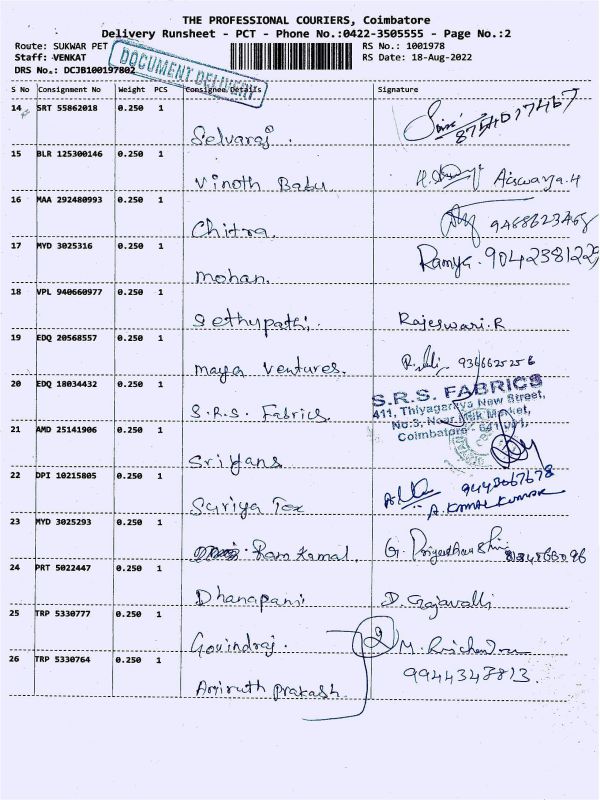 THE PROFESSIONAL COURIERS, Coimbatore
Delivery Runsheet - PCT - Phone No.:0422-3505555 - Page No.:2
Route: SUKWAR PET
RS No.: 1001978
Staff: VENKAT
RS Date: 18-Aug-2022
DRS No.: DCJB100197802
DOCUMENT DELIVERY
S No Consignment No Weight PCS Consignee Details Signature
14 SRT 55862018 0.250 1
Selvaraj. 8754017467
15 BLR 125300146 0.250 1
Vinoth Babu Aiswarya.H
16 MAA 292480993 0.250 1
Chitra
17 MYD 3025316 0.250 1
Mohan. Ramya. 9042381225
18 VPL 940660977 0.250 1
Sethupathi. Rajeswari.R
19 EDQ 20568557 0.250 1
Maya Ventures.
20 EDQ 18034432 0.250 1
S.R.S. Fabrics
S.R.S. FABRICS
411, Thiyagaraya New Street,
No:3, Near Milk Market,
Coimbatore - 641 001.
21 AMD 25141906 0.250 1
Sriyans
22 DPI 10215805 0.250 1
Suriya Tex 9443067678
A. KAMAL KUMAR
23 MYD 3025293 0.250 1
Ram Kamal. G.
24 PRT 5022447 0.250 1
Dhanapani D. Gajavalli
25 TRP 5330777 0.250 1
Govindraj. 2 M.
26 TRP 5330764 0.250 1
Amiruth Prakash. 9944343813.